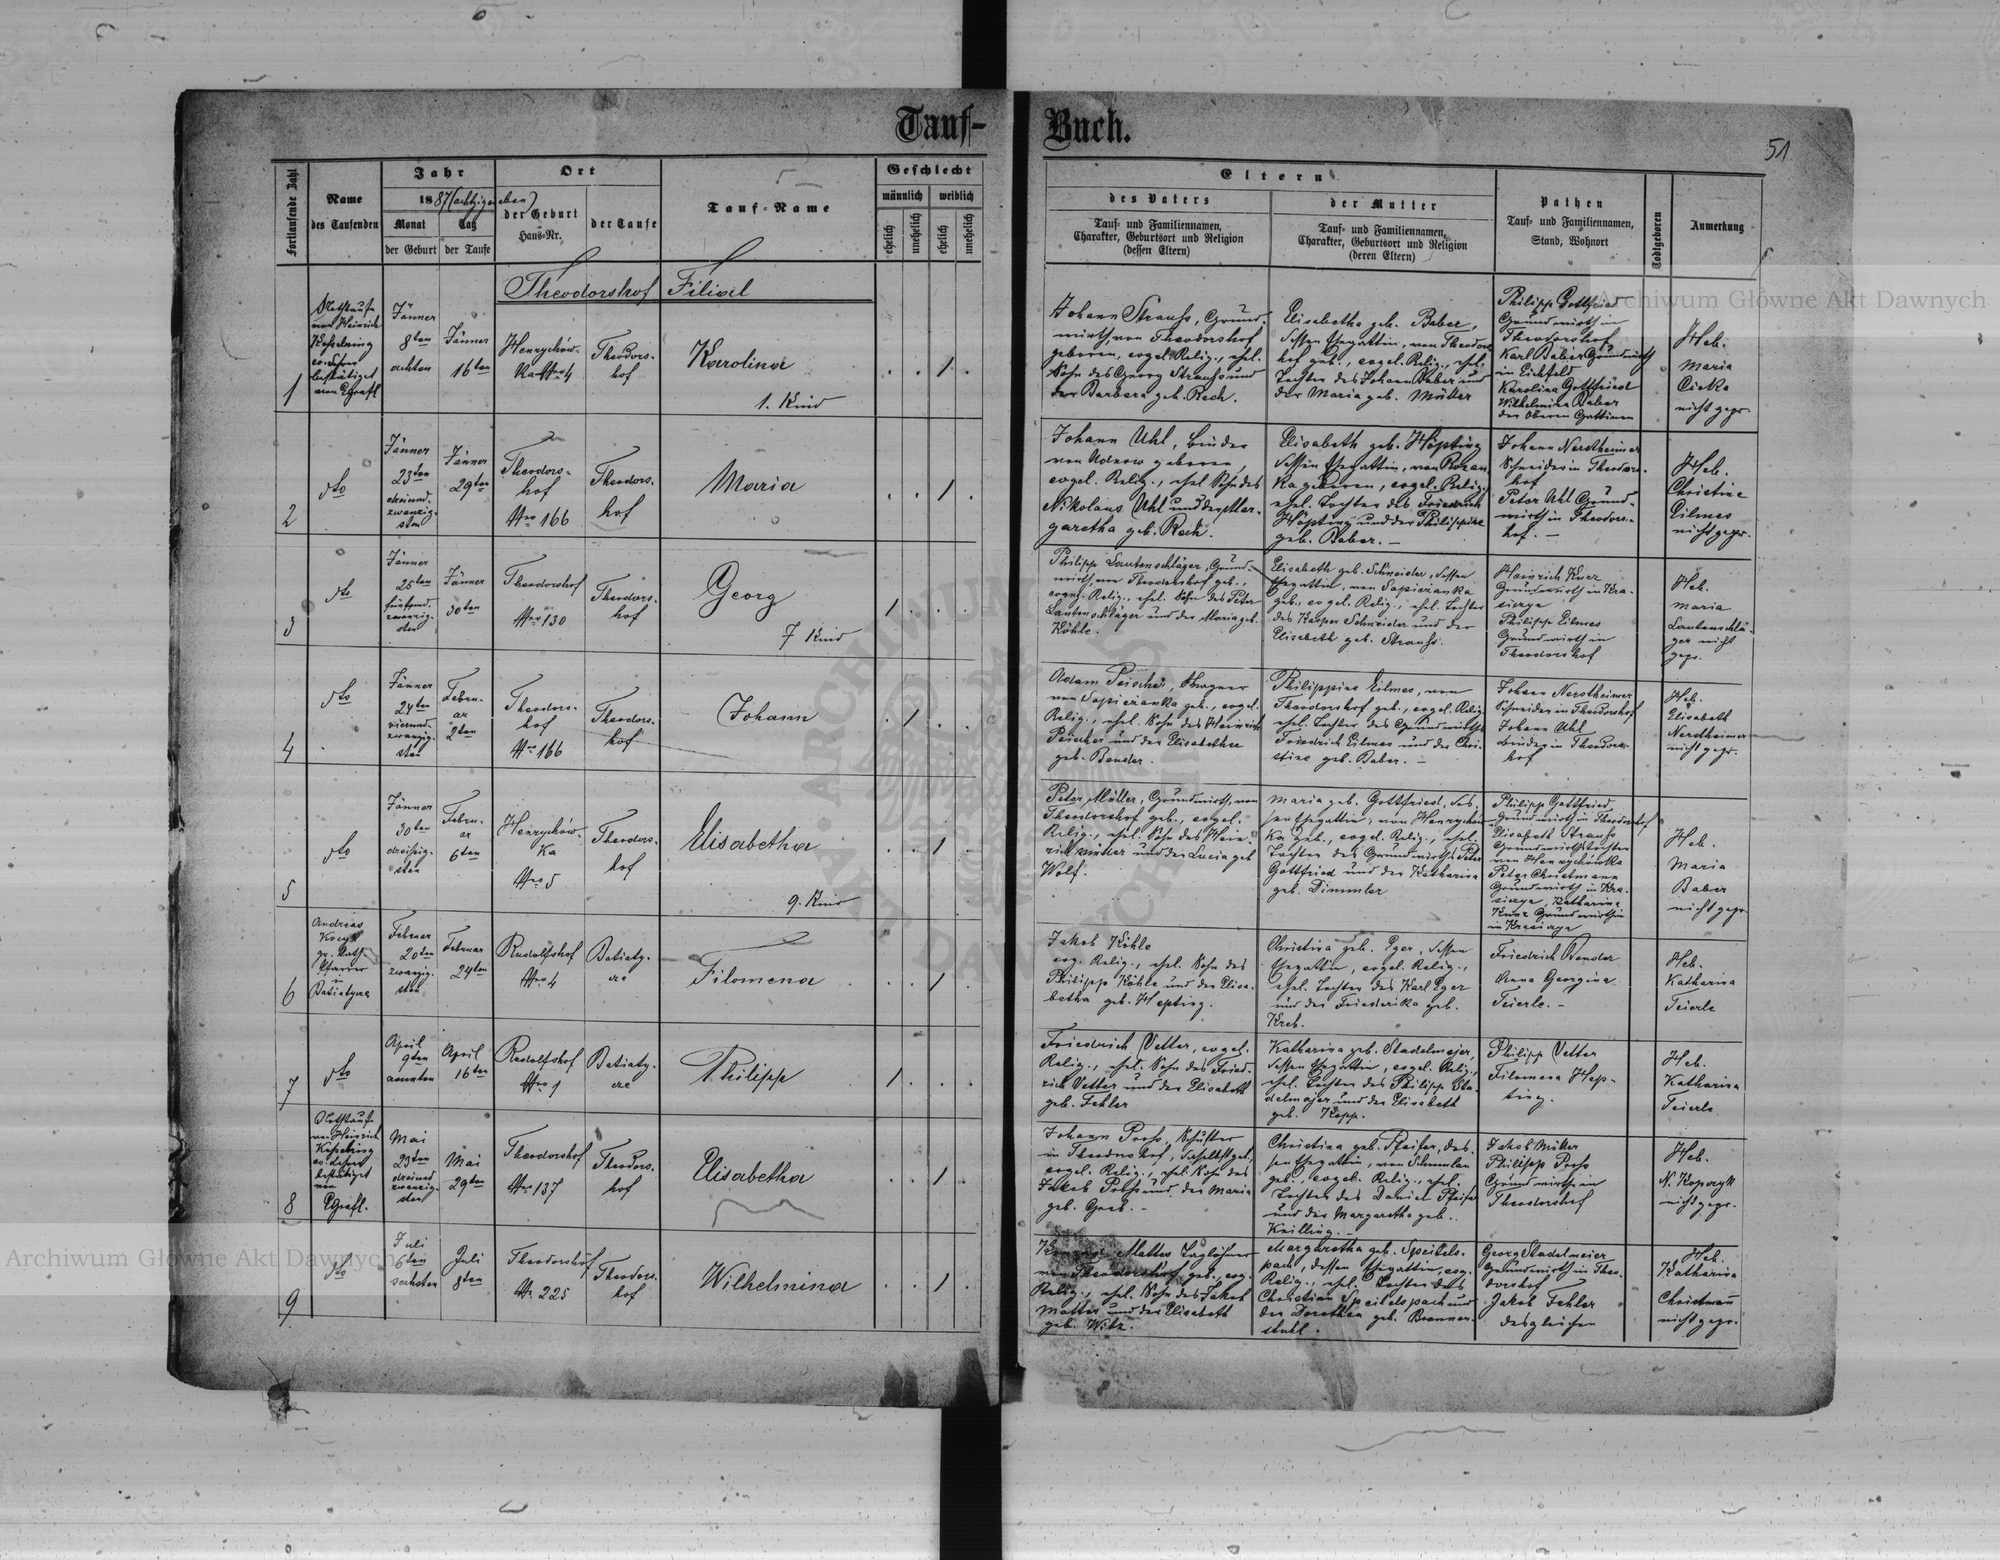 Tauf-
Buch.
51
Fortlaufende Zahl
Name
des Taufenden
Jahr
1887 (achtzigsieben)
Monat
Tag
der Geburt
der Taufe
Ort
der Geburt
Haus-Nr.
der Taufe
Tauf-Name
Geschlecht
männlich
weiblich
ehelich
unehelich
ehelich
unehelich
Eltern
des Vaters
Tauf- und Familiennamen,
Charakter, Geburtsort und Religion
(dessen Eltern)
der Mutter
Tauf- und Familiennamen,
Charakter, Geburtsort und Religion
(deren Eltern)
Pathen
Tauf- und Familiennamen,
Stand, Wohnort
Todtgeboren
Anmerkung
Theodorshof Filial
1
Nothtaufe
von Heinrich
bestätigt
Jänner
8ten
achten
Jänner
16ten
Henrychów-
ka Nro 4
Theodors-
hof
Karolina
1. Kind
Johann Strauss, Grund-
wirth, von Theodorshof
geboren, evgel. Relig., ehel.
Sohn des Georg Strauss und
der Barbara geb. Rech.
Elisabetha geb. Baber,
dessen Ehegattin, von Theodors
hof geb., evgel. Relig., ehel.
Tochter des Johann Baber und
der Maria geb. Müller
Philipp Gottfried
Grundwirth in
Theodorshof
Karl Baber Grundwirth
in
Karolina Gottfried
Wilhelmina Baber
der Oberen Gattinen
Heb.
Maria
nicht gepr.
2
dto
Jänner
23ten
dreiund-
zwanzig-
sten
Jänner
29ten
Theodors-
hof
Nro 166
Theodors-
hof
Maria
Johann Uhl, Binder
von geboren,
evgel. Relig., ehel. Sohn des
Nikolaus Uhl und der Mar-
garetha geb. Rech.
Elisabeth geb. Höpting
dessen Ehegattin, von
ka geboren, evgel. Relig.,
ehel. Tochter des Friedrich
Höpting und der Philippine
geb. Baber. —
Johann Nerdtheimer
Schneider in Theodors-
hof
Peter Uhl Grund-
wirth in Theodors-
hof. —
Heb.
Christine
Eilmes
nicht gepr.
3
dto
Jänner
25ten
fünfund-
zwanzig-
sten
Jänner
30ten
Theodorshof
Nro 130
Theodors-
hof
Georg
7 Kind
Philipp Lautenschläger, Grund-
wirth, von Theodorshof geb.,
evgel. Relig., ehel. Sohn des Peter
Lautenschläger und der Maria geb.
Köhle.
Elisabeth geb. Schneider, dessen
Ehegattin, von Sapieranka
geb., evgel. Relig., ehel. Tochter
des Kasper Schneider und der
Elisabeth geb. Strauss.
Heinrich Kurz
Grundwirth in Kra-
sierga
Philipp Eilmes
Grundwirth in
Theodorshof
Heb.
Maria
Lautenschlä-
ger nicht
gepr.
4
dto
Jänner
24ten
vierund-
zwanzig-
sten
Febru-
ar
2ten
Theodors-
hof
Nro 166
Theodors-
hof
Johann
Adam
von Sapieranka geb., evgel.
Relig., ehel. Sohn des Heinrich
und der Elisabetha
geb. Bender.
Philippine Eilmes, von
Theodorshof geb., evgel. Relig.
ehel. Tochter des Grundwirths
Friedrich Eilmes und der Chri-
stine geb. Baber. —
Johann Nerdtheimer
Schneider in Theodorshof
Johann Uhl
Binder in Theodors-
hof
Heb.
Elisabeth
Nerdtheimer
nicht gepr.
5
dto
Jänner
30ten
dreissig-
sten
Febru-
ar
6ten
Henrychów-
ka
Nro 5
Theodors-
hof
Elisabetha
9. Kind
Peter Müller, Grundwirth, von
Theodorshof geb., evgel.
Relig., ehel. Sohn des Hein-
rich Müller und der Lucia geb
Wolf.
Maria geb. Gottfried, des-
sen Ehegattin, von Henrychow
ka geb., evgel. Relig., ehel.
Tochter des Grundwirths Peter
Gottfried und der Katharina
geb. Dimmler
Philipp Gottfried
Grundwirth in Theodorshof
Elisabeth Strauss
Grundwirthstochter
von Henrychówka
Peter Christmann
Grundwirth in Kra-
sierga, Katharina
Kurz Grundwirthin
in Krasierga
Heb.
Maria
Baber
nicht gepr.
6
Andreas
gr. kath.
Pfarrer
in
Batiatycze
Februar
20ten
zwanzig-
sten
Februar
24ten
Rudolfshof
Nro 4
Batiaty-
cze
Filomena
Jakob Köhle
evg. Relig., ehel. Sohn des
Philipp Köhle und der Elisa-
betha geb. Hepting.
Christina geb. Eger, dessen
Ehegattin, evgel. Relig.,
ehel. Tochter des Karl Eger
und der Friederika geb.
Kreb.
Friedrich Bender
Anna Georgina
Feierle. —
Heb.
Katharina
Feierle
7
dto
April
9ten
neunten
April
16ten
Rudolfshof
Nro 1
Batiaty-
cze
Philipp
Friedrich Vetter, evgel.
Relig., ehel. Sohn des Fried-
rich Vetter und der Elisabeth
geb. Fehler
Katharina geb. Stadelmejer,
dessen Ehegattin, evgel. Relig.,
ehel. Tochter des Philipp Sta-
delmajer und der Elisabeth
geb. Kopp.
Philipp Vetter
Filomena Hep-
ting.
Heb.
Katharina
Feierle
8
Nothtaufe
von Heinrich
bestätigt
von
Mai
23ten
dreiund
zwanzig-
sten
Mai
29ten
Theodorshof
Nro 137
Theodors-
hof
Elisabetha
Johann Pross, Schuster
in Theodorshof, daselbst geb.,
evgel. Relig., ehel. Sohn des
Jakob Pross und der Maria
geb. Greb. —
Christina geb. Pfeifer, des-
sen Ehegattin, von
geb., evgel. Relig., ehel.
Tochter des Daniel Pfeifer
und der Margaretha geb.
Knilling. —
Jakob Müller
Philipp Pross
Grundwirthe in
Theodorshof
Heb.
N. Kopczyk
nicht gepr.
9
dto
Juli
6ten
sechsten
Juli
8ten
Theodorshof
Nr. 225
Theodors-
hof
Wilhelmina
Matter Taglöhner
von Theodorshof geb., evg.
Relig., ehel. Sohn des Jakob
Matter und der Elisabeth
geb. Witz.
Margaretha geb. Speitels-
pach, dessen Ehegattin, evg.
Relig., ehel. Tochter des
Christian Speitelspach und
der Dorothea geb. Brenner-
stuhl.
Georg Stadelmeier
Grundwirth in Theo-
dorshof
Jakob Fehler
desgleichen
Heb.
Katharina
Christmann
nicht gepr.
Archiwum Główne Akt Dawnych
Archiwum Główne Akt Dawnych